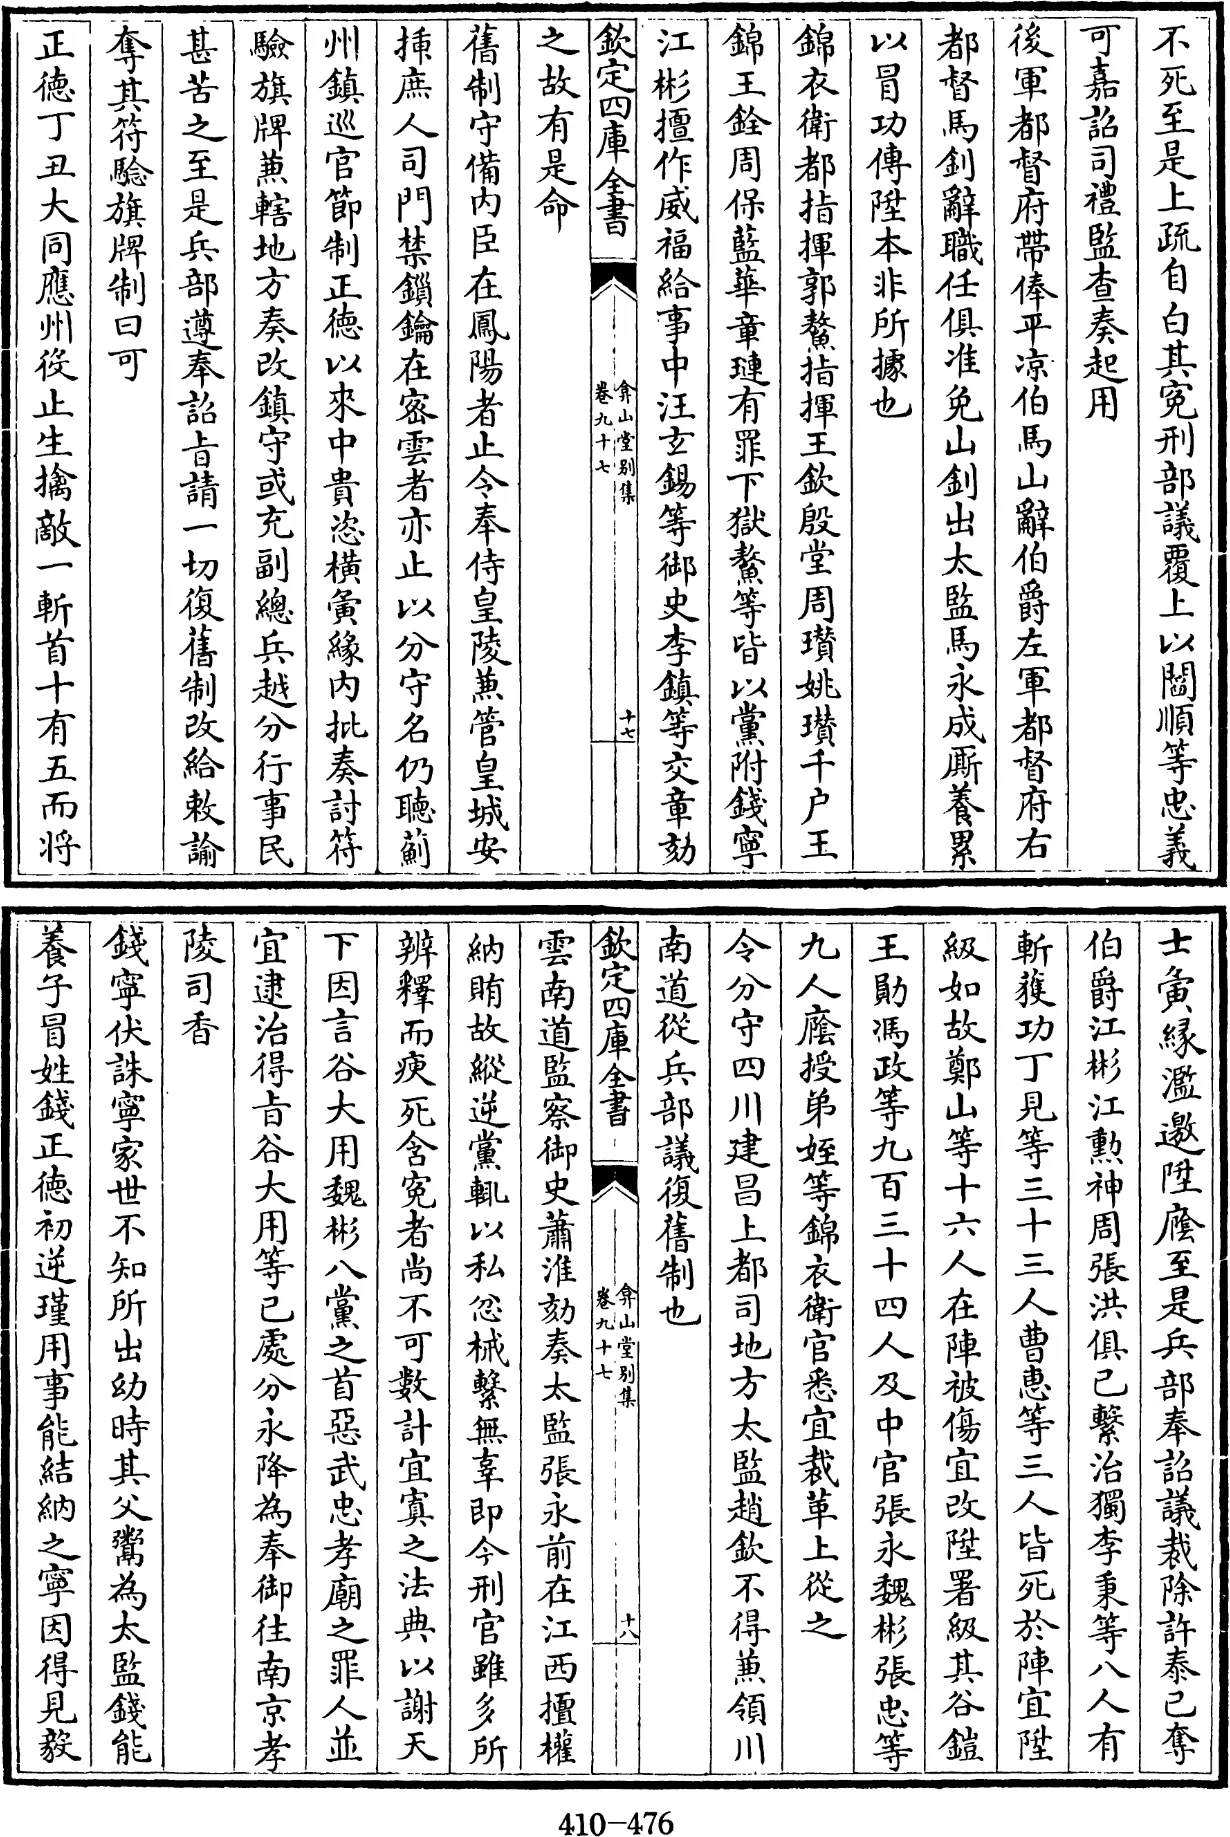 不死至是上疏自白其寃刑部議覆上以閻順等忠義
可嘉詔司禮監查奏起用
後軍都督府帶俸平凉伯馬山辭伯爵左軍都督府右
都督馬釗辭職任俱准免山釗出太監馬永成厮養累
以冒功傳陞本非所據也
錦衣衛都指揮郭鰲指揮王欽殷堂周瓚姚瓚千户王
錦王銓周保藍華章璉有罪下獄鰲等皆以黨附錢寧
江彬擅作威福給事中汪玄錫等御史李鎮等交章劾
欽定四庫全書
弇山堂别集
卷九十七
十七
之故有是命
舊制守備内臣在鳳陽者止令奉侍皇陵兼管皇城安
揷庶人司門禁鎖鑰在宻雲者亦止以分守名仍聽薊
州鎮巡官節制正德以來中貴恣橫夤緣内批奏討符
驗旗牌兼轄地方奏改鎮守或充副總兵越分行事民
甚苦之至是兵部遵奉詔㫖請一切復舊制改給敕諭
奪其符驗旗牌制曰可
正德丁丑大同應州役止生擒敵一斬首十有五而將
士夤緣濫邀陞廕至是兵部奉詔議裁除許泰已奪
伯爵江彬江勲神周張洪俱已繫治獨李秉等八人有
斬獲功丁見等三十三人曹惠等三人皆死於陣宜陞
級如故鄭山等十六人在陣被傷宜改陞署級其谷鎧
王勛馮政等九百三十四人及中官張永魏彬張忠等
九人廕授弟姪等錦衣衛官悉宜裁革上從之
令分守四川建昌上都司地方太監趙欽不得兼領川
南道從兵部議復舊制也
欽定四庫全書
弇山堂别集
卷九十七
十八
雲南道監察御史蕭淮劾奏太監張永前在江西擅權
納賄故縱逆黨輒以私忿械繫無辜即今刑官雖多所
辨釋而瘐死含寃者尚不可數計宜寘之法典以謝天
下因言谷大用魏彬八黨之首惡武忠孝廟之罪人並
宜逮治得㫖谷大用等已處分永降為奉御往南京孝
陵司香
錢寧伏誅寧家世不知所出幼時其父鬻為太監錢能
養子冒姓錢正德初逆瑾用事能結納之寧因得見毅
410-476